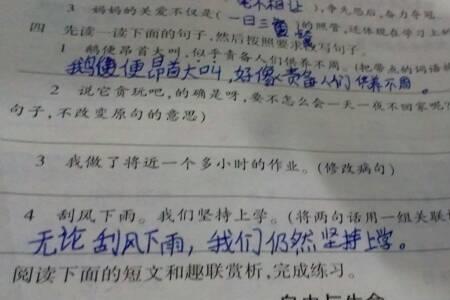 3 妈妈的关爱不仅是(一日三餐)的照管,还体现在学习上的
毛不相让 ),争先恐后,奋力夺冠
四 先读一读下面的句子,然后按照要求改写句子。
1 鹅便昂首大叫,似乎责备人们供养不周。(把带点的词语换
鹅便便昂首大叫,好像责备人们供养不周。
2 说它贪玩吧,的确是呀,要不怎么会一天一夜不回家呢?
句子,不改变原句的意思)
3 我做了将近一个多小时的作业。(修改病句)
4 刮风下雨。我们坚持上学。(将两句话用一组关联
无论刮风下雨,我们仍然坚持上学。
阅读下面的短文和趣联赏析,完成练习。